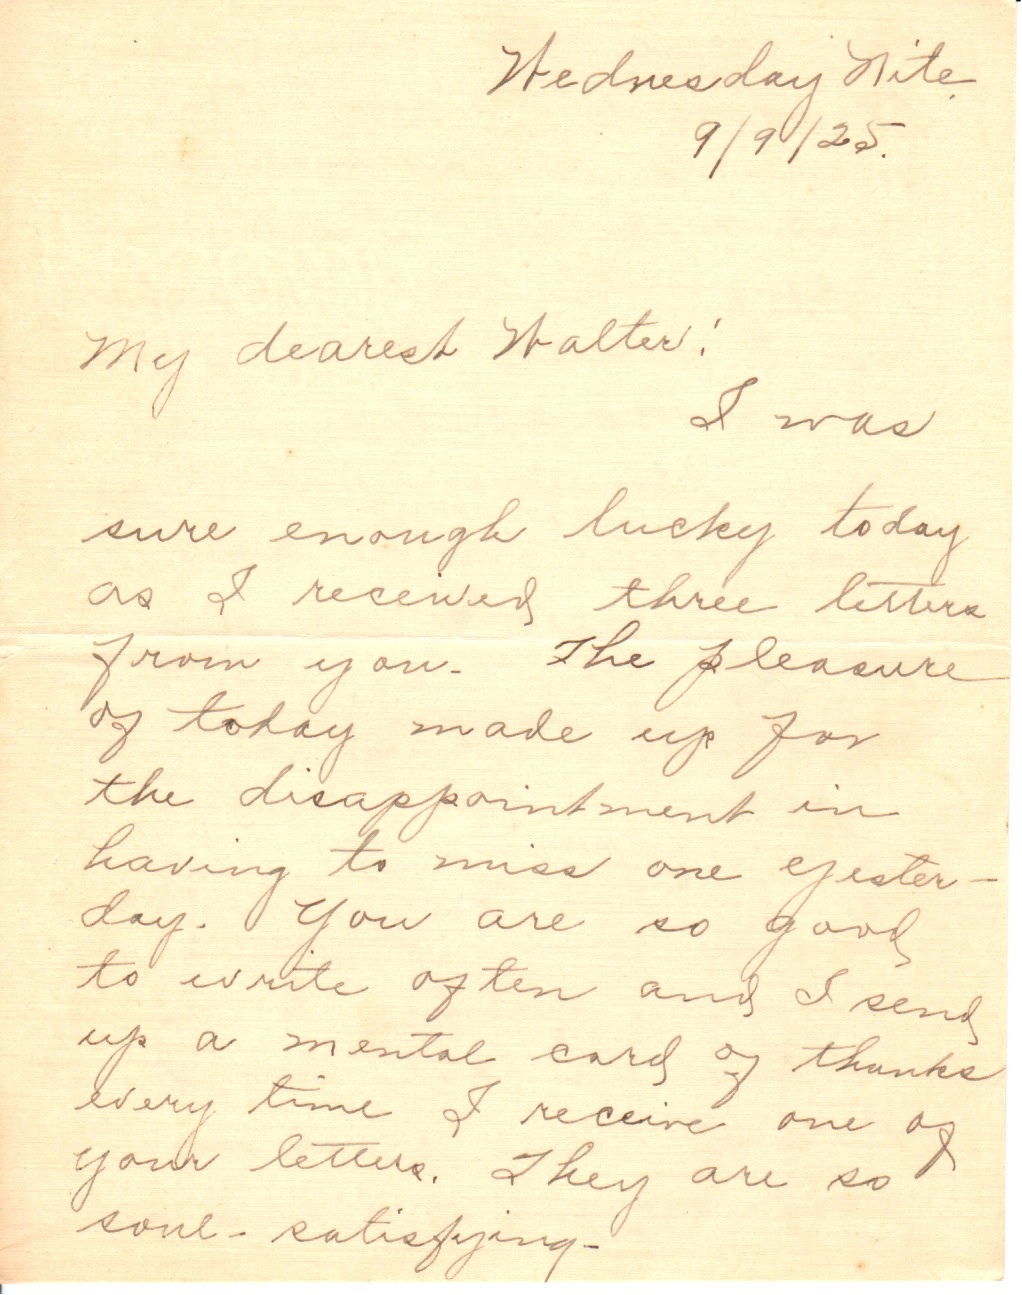 Wednesday Nite.
9/9/25.
My dearest Walter:
I was
sure enough lucky today
as I received three letters
from you. The pleasure
of today made up for
the disappointment in
having to miss one yester-
day. You are so good
to write often and I send
up a mental card of thanks
every time I receive one of
your letters. They are so
soul-satisfying-